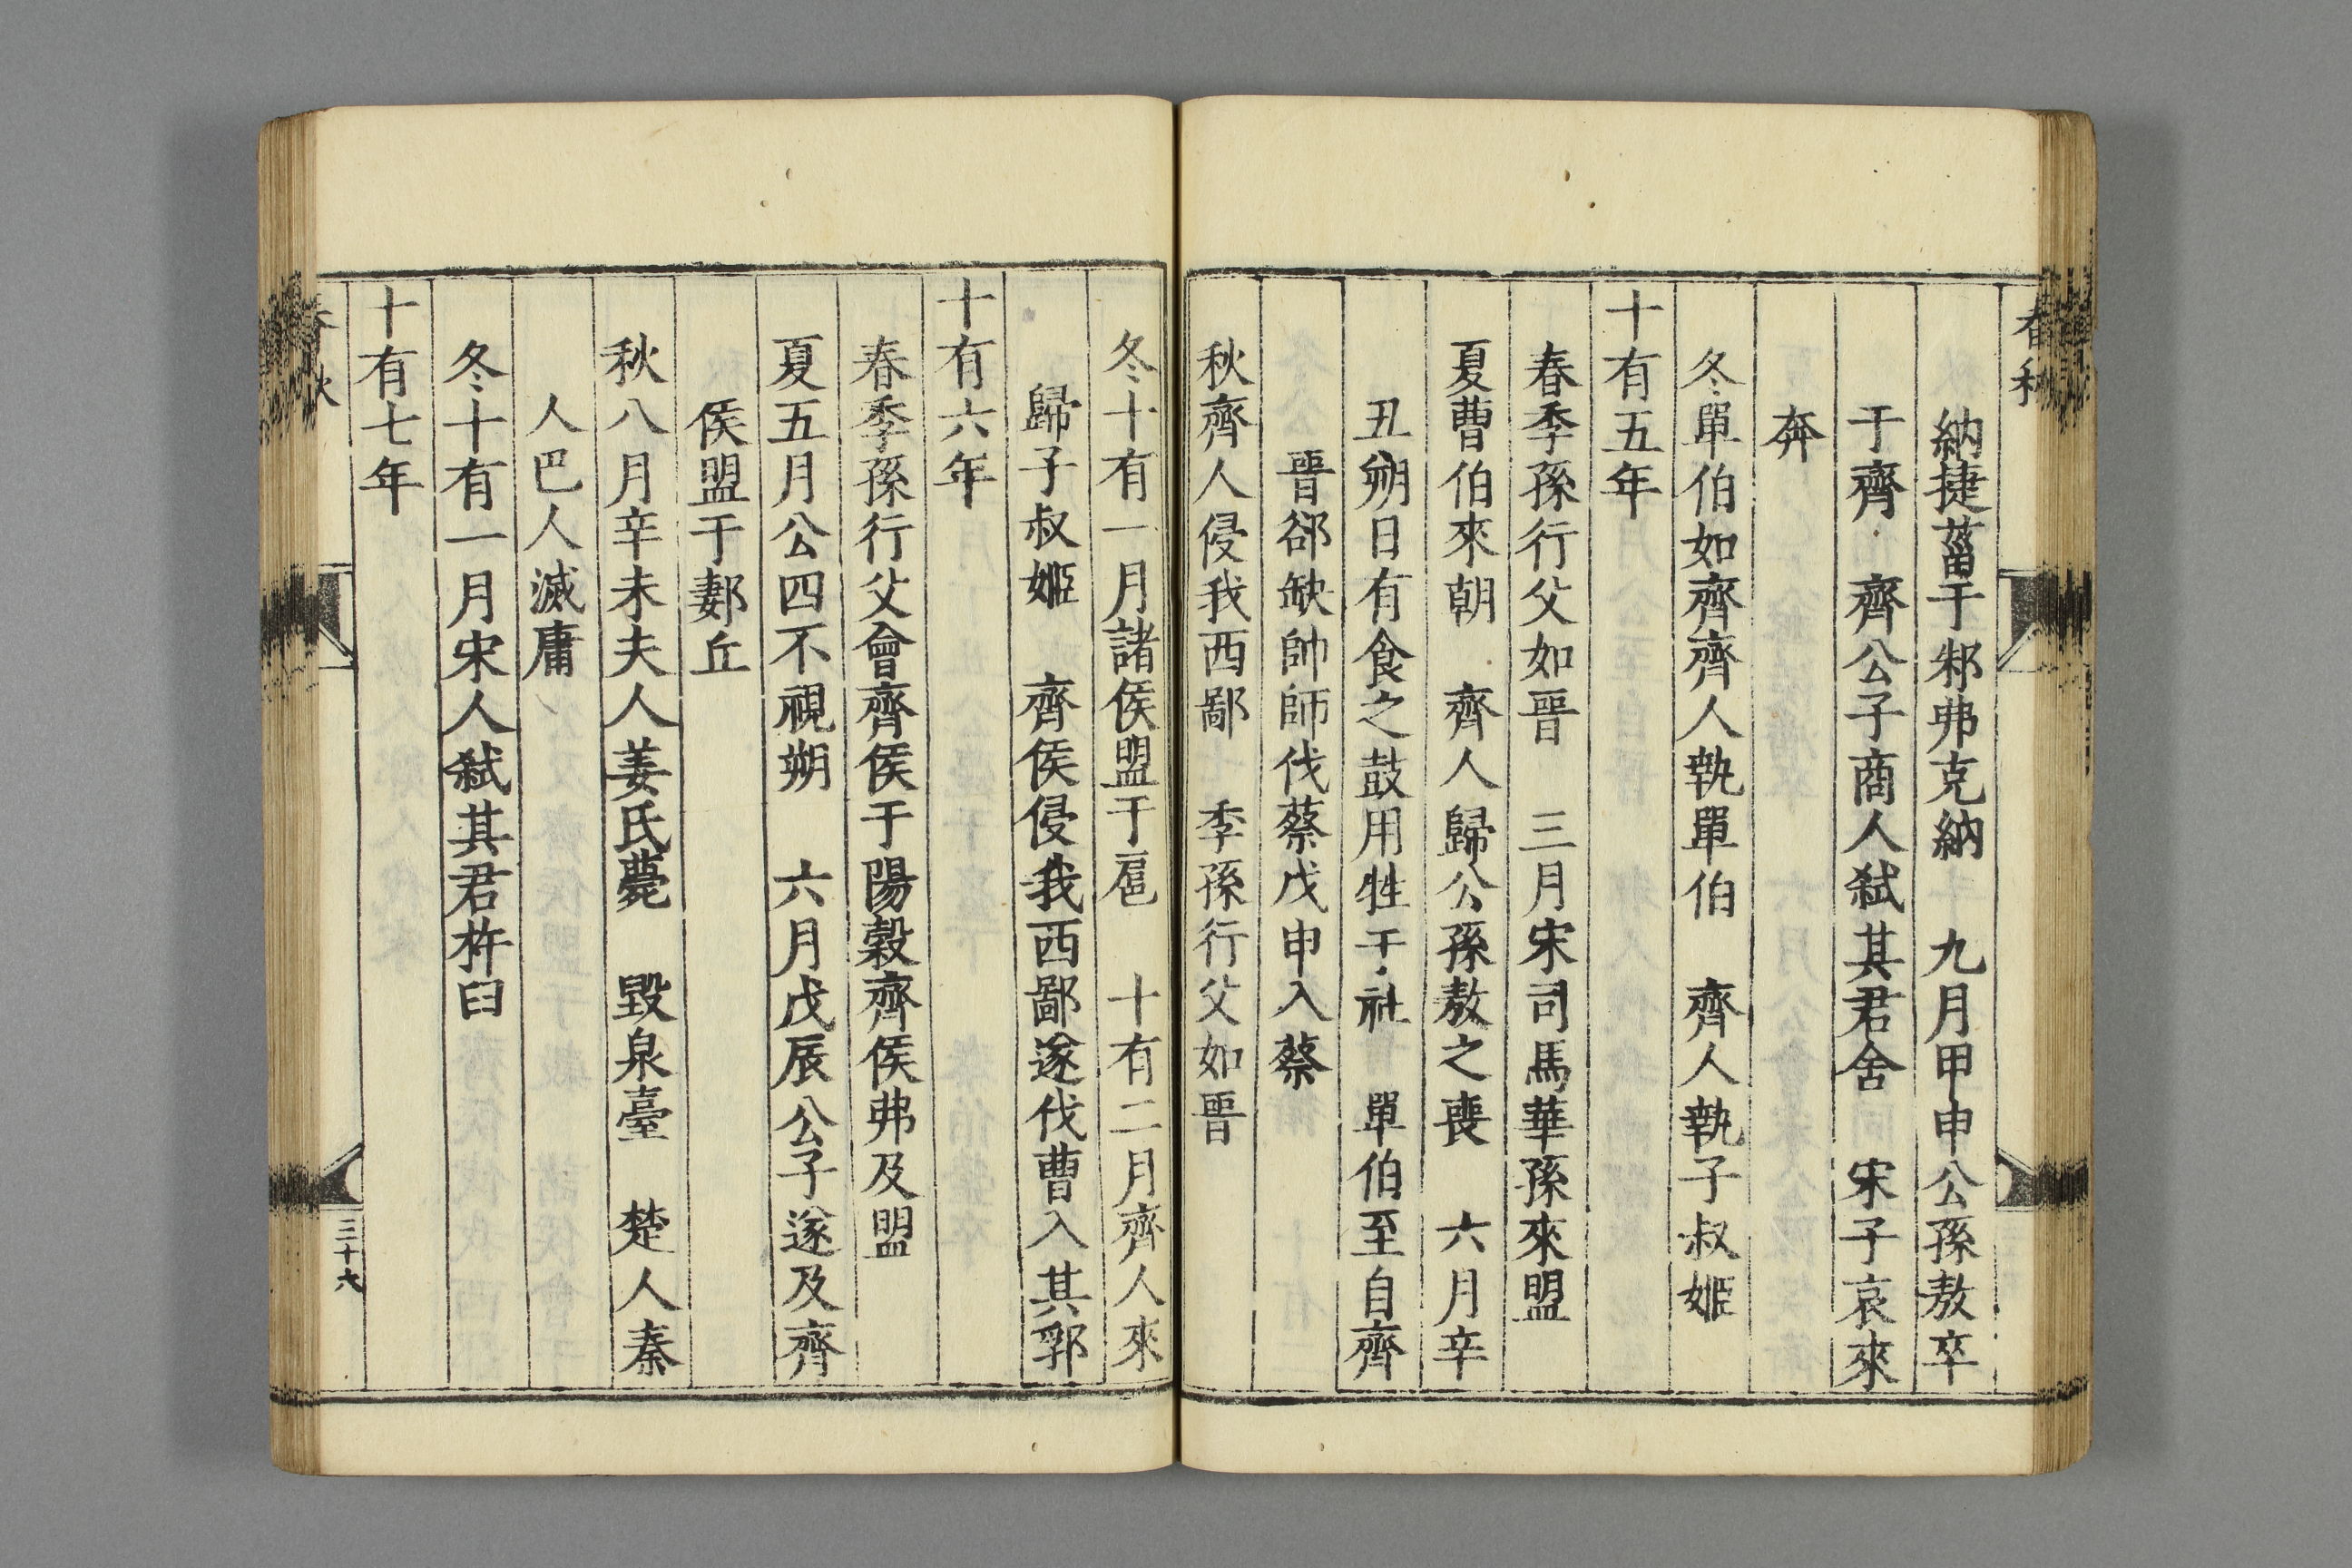 春秋
納捷菑于邾弗克納　九月甲申公孫敖卒
于齊　齊公子商人弑其君舍　宋子哀來
奔
冬單伯如齊齊人執單伯　齊人執子叔姬
十有五年
春季孫行父如晉　三月宋司馬華孫來盟
夏曹伯來朝　齊人歸公孫敖之喪　六月辛
丑朔日有食之鼓用牲于社　單伯至自齊
晉郤缺帥師伐蔡戊申入蔡
秋齊人侵我西鄙　季孫行父如晉
冬十有一月諸侯盟于扈　十有二月齊人來
歸子叔姬　齊侯侵我西鄙遂伐曹入其郛
十有六年
春季孫行父會齊侯于陽穀齊侯弗及盟
夏五月公四不視朔　六月戊辰公子遂及齊
侯盟于郪丘
秋八月辛未夫人姜氏薨　毀泉臺　楚人秦
人巴人滅庸
冬十有一月宋人弑其君杵臼
十有七年
春秋
三十六